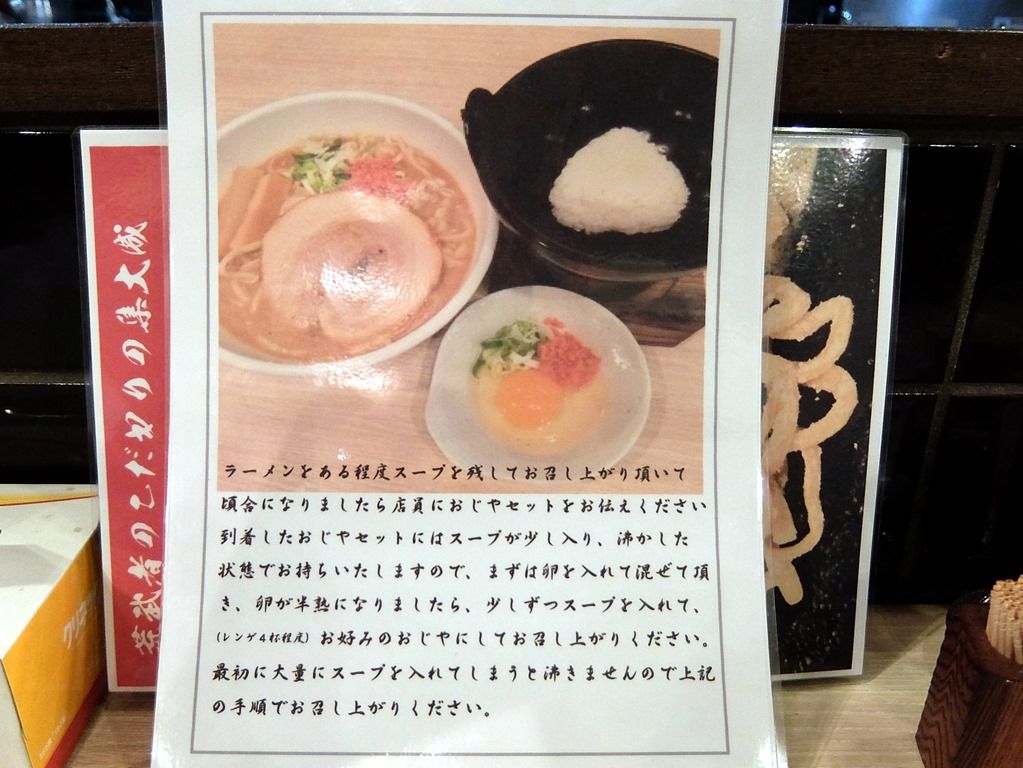 若武者のこだわりの集大成
ラーメンをある程度スープを残してお召し上がり頂いて
頃合になりましたら店員におじやセットをお伝えください
到着したおじやセットにはスープが少し入り、沸かした
状態でお持ちいたしますので、まずは卵を入れて混ぜて頂
き、卵が半熟になりましたら、少しずつスープを入れて、
(レンゲ4杯程度)お好みのおじやにしてお召し上がりください。
最初に大量にスープを入れてしまうと沸きませんので上記
の手順でお召し上がりください。